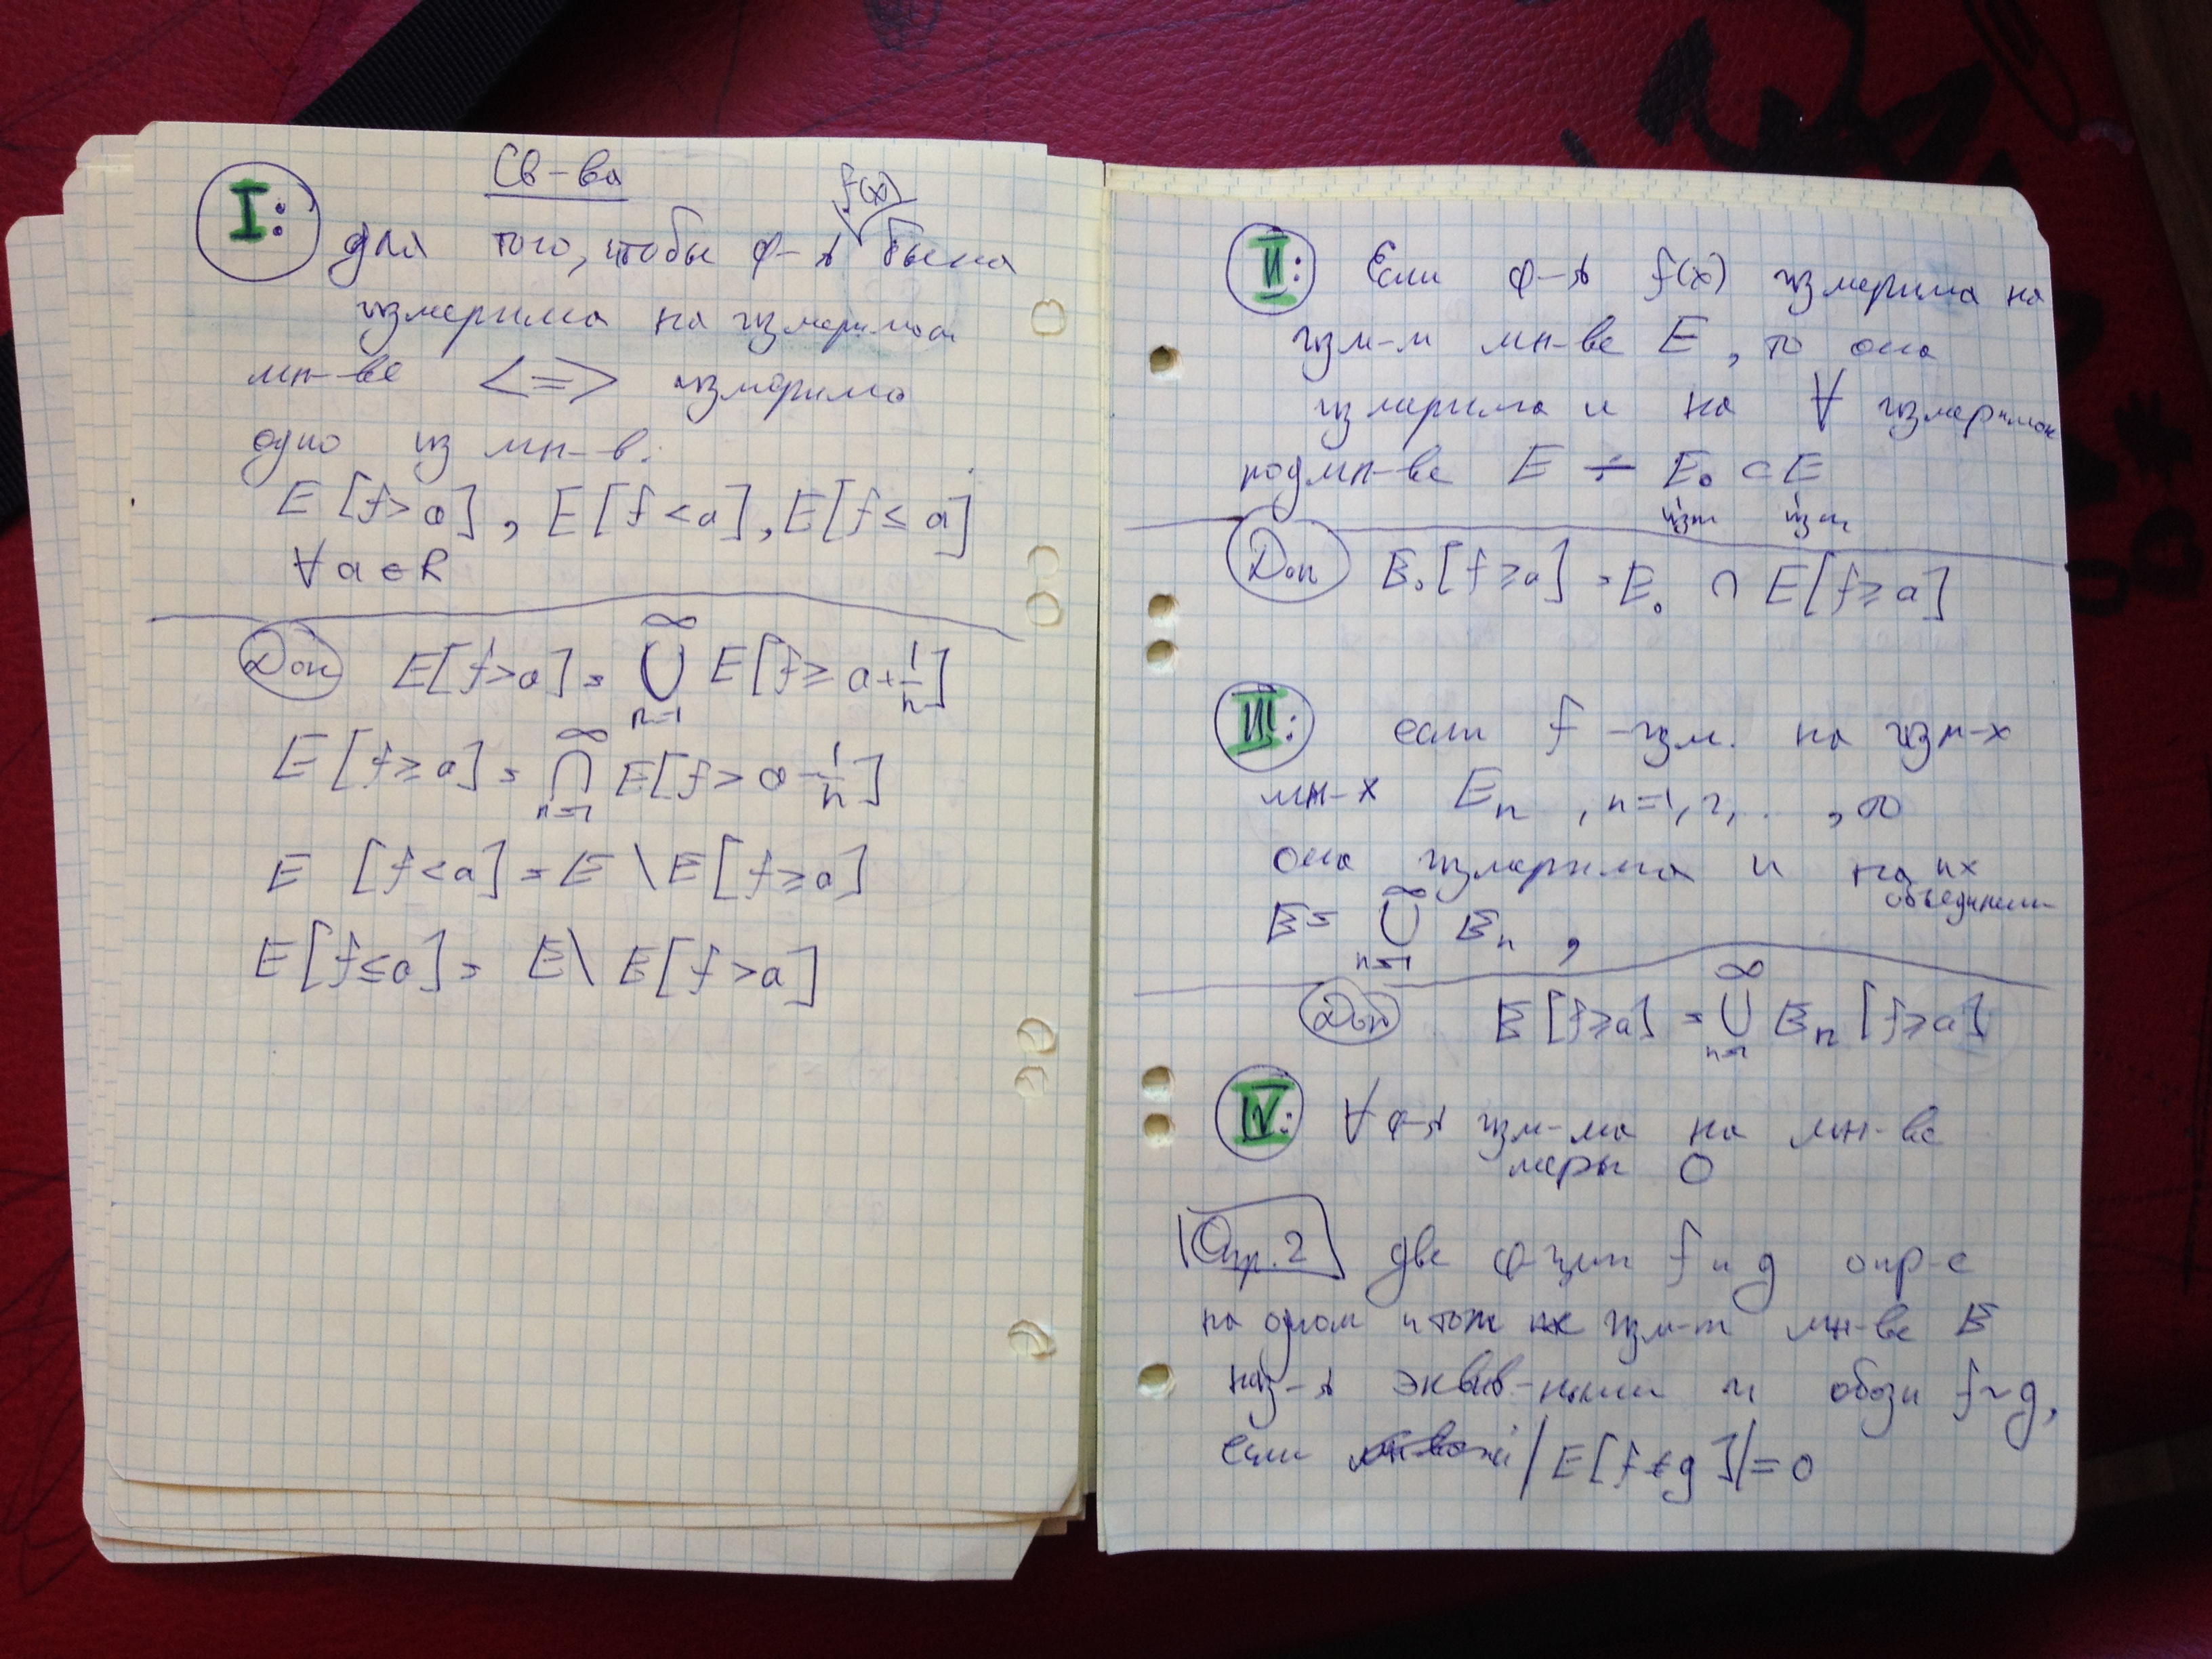 Св-ва
I: для того, чтобы ф-я f(x) была
измерима на измеримом
мн-ве <=> измеримо
одно из мн-в:
E[f>a], E[f<a], E[f≤a]
∀a∈R
Док E[f>a] = ∞⋃n=1 E[f≥a+1/n]
E[f≥a] = ∞⋂n=1 E[f>a-1/n]
E [f<a] = E \ E[f≥a]
E[f≤a] = E \ E[f>a]
II: Если ф-я f(x) измерима на
изм-м мн-ве E, то она
измерима и на ∀ измеримом
подмн-ве E ÷ E₀ ⊂ E
изм изм
Док E₀[f≥a] = E₀ ∩ E[f≥a]
III: если f - изм. на изм-х
мн-х Eₙ, n=1,2,.. , то
она измерима и на их
объединении
E = ∞⋃n=1 Eₙ,
Док E[f≥a] = ∞⋃n=1 Eₙ[f≥a]
IV: ∀ ф-я изм-ма на мн-ве
меры 0
Опр.2 две ф-ции f и g опр-е
на одном и том же изм-м мн-ве E
наз-я эквив-ными и обозн f~g,
если |E[f≠g]|=0